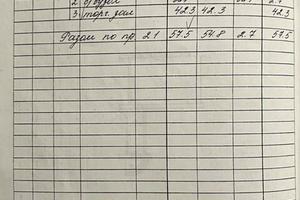 3 торг. зал 42.3 42.3 42.3
Разом по пр 21 57.5 54.8 2.7 57.5